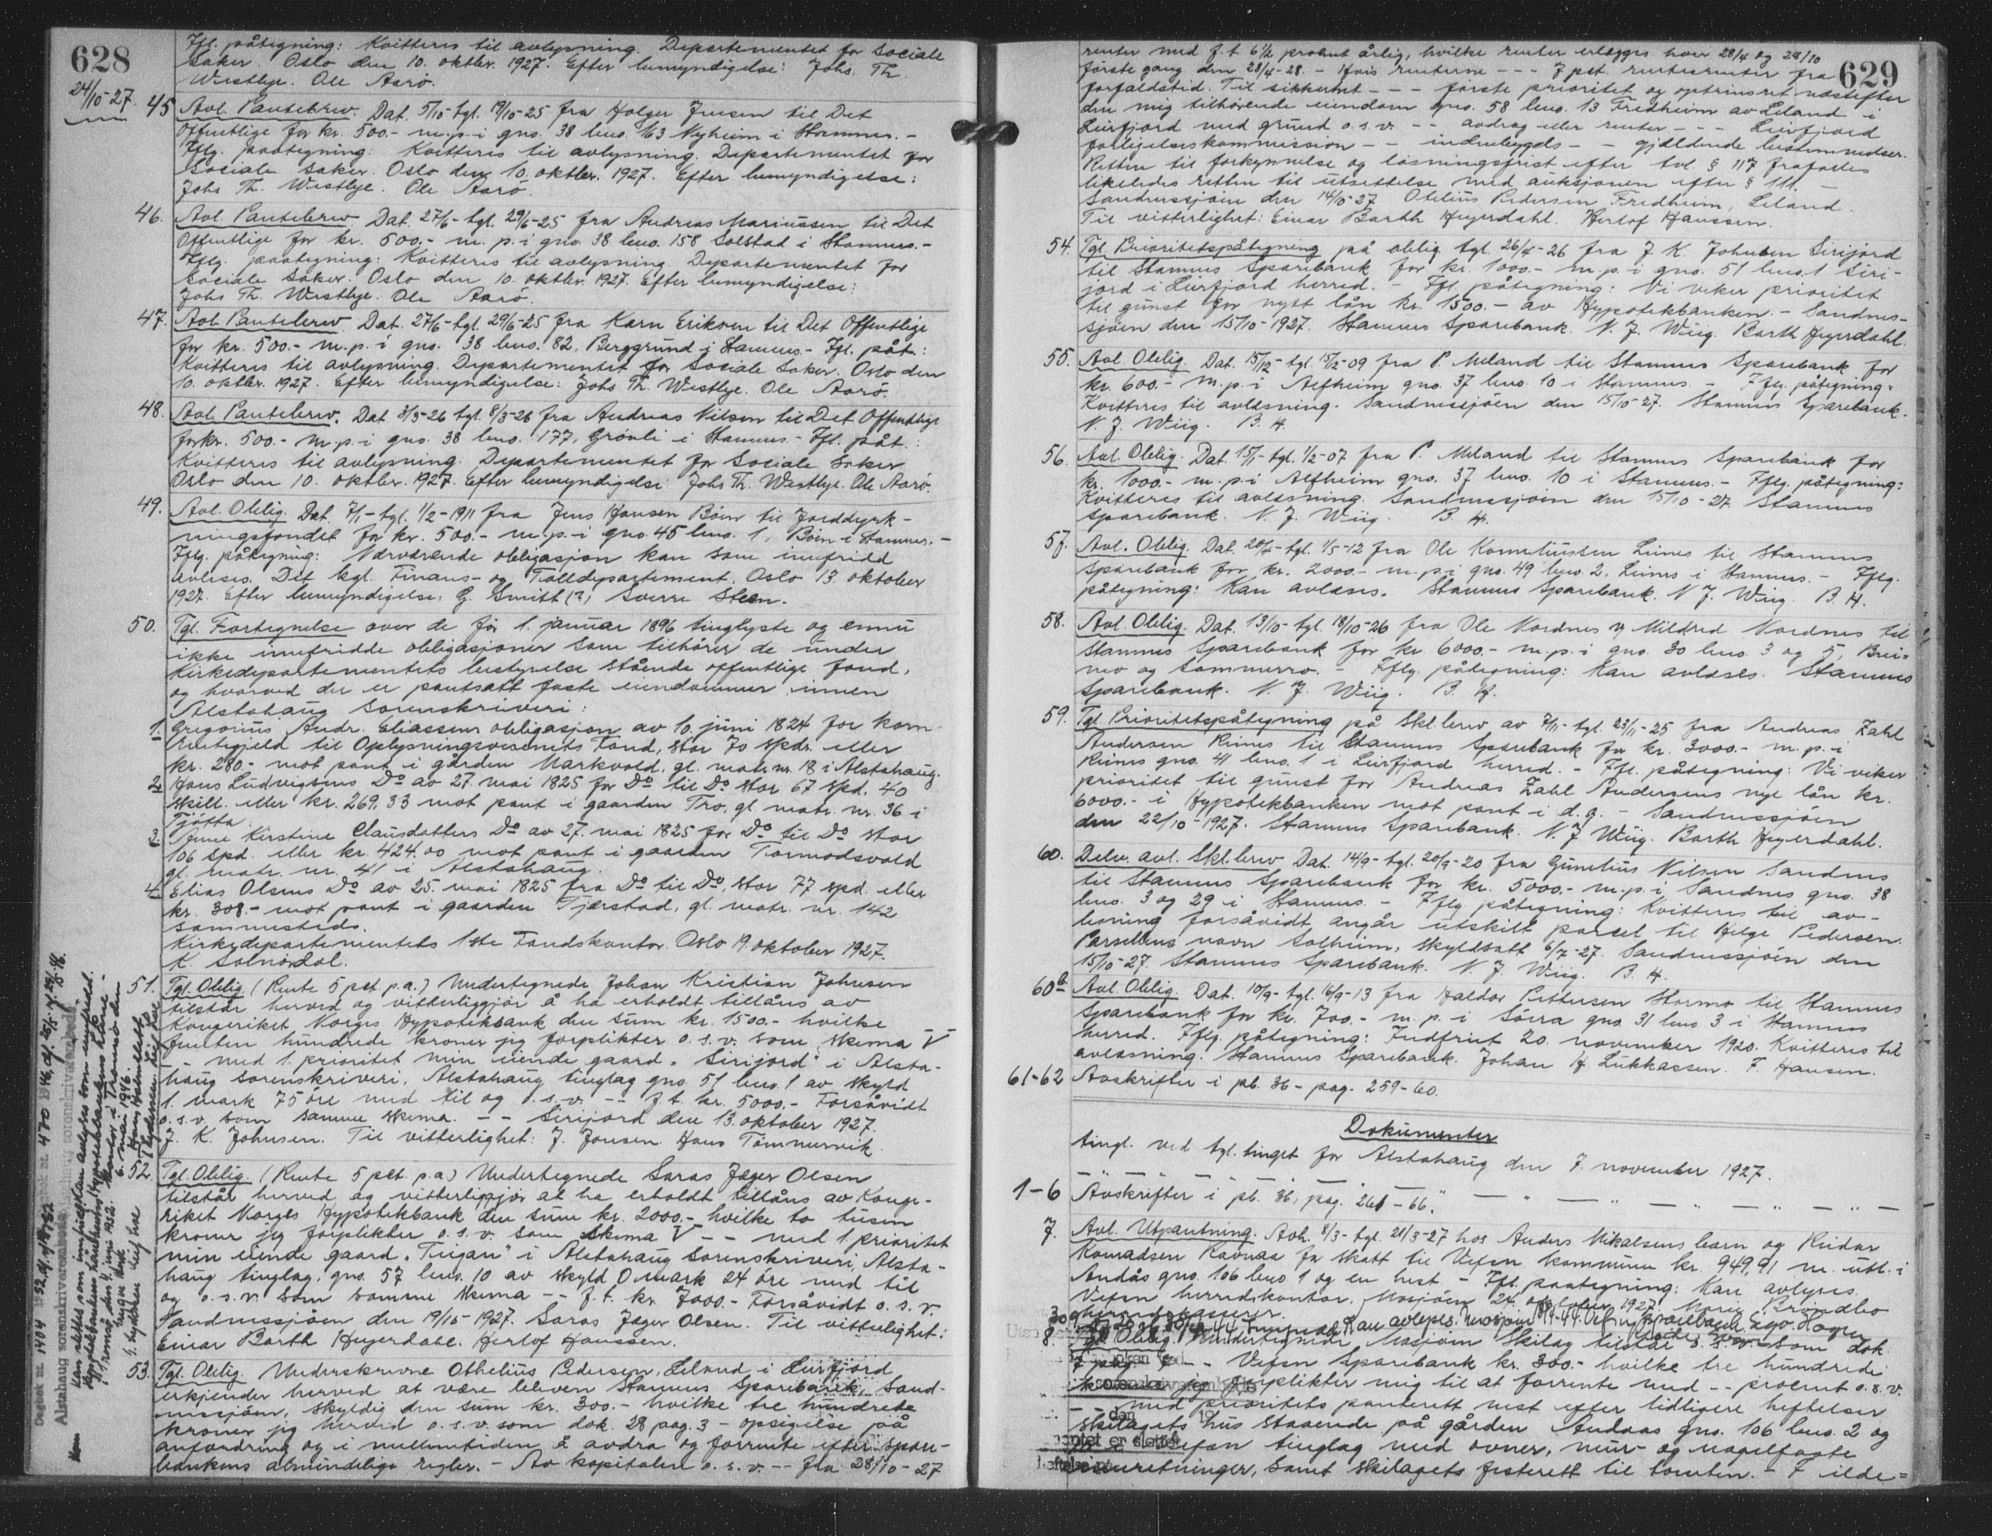 628
24/10-27.
Ifl. påtegning: Kvitteres til avlysning. Departementet for Sociale
Saker. Oslo den 10. oktbr. 1927. Efter bemyndigelse: Johs. Th.
Westbye. Ole Aarø.
45 Avl. Pantebrev. Dat. 5/10-tgl. 19/10-25 fra Holger Jensen til Det
Offentlige for kr. 500.- m.p.i gno. 38 bno. 163 Nyheim i Stamnes.-
Iflg. paategning: Kvitteres til avlysning. Departementet for
Sociale Saker. Oslo den 10. oktbr. 1927. Efter bemyndigelse:
Johs Th. Westbye. Ole Aarø.
46. Avl. Pantebrev. Dat. 27/6-tgl. 29/6-25 fra Andreas Mariussen til Det
Offentlige for kr. 500.- m.p.i gno. 38 bno. 158 Solstad i Stamnes.-
Iflg. paategning: Kvitteres til avlysning. Departementet for
Sociale Saker. Oslo den 10. oktbr. 1927. Efter bemyndigelse:
Johs Th. Westbye. Ole Aarø.
47. Avl. Pantebrev. Dat. 27/6-tgl. 29/6-25 fra Karn Eriksen til Det Offentlige
for kr. 500.- m.p.i gno. 38 bno. 82, Berggrund i Stamnes.- Ifl. påt.:
Kvitteres til avlysning. Departementet for Sociale Saker. Oslo den
10. oktbr. 1927. Efter bemyndigelse: Johs Th. Westbye. Ole Aarø.
48. Avl. Pantebrev. Dat. 3/3-26 tgl. 8/3-26 fra Andreas Nilsen til Det Offentlige
for kr. 500.- m.p.i gno. 38 bno. 177, Grønli i Stamnes.- Ifl. påt.:
Kvitteres til avlysning. Departementet for Sociale Saker
Oslo den 10. oktbr. 1927. Efter bemyndigelse: Johs Th. Westbye. Ole Aarø.
49. Avl. Oblig. Dat. 7/1-tgl. 1/2-1911 fra Jens Hansen Bøen til Jorddyrk-
ningsfondet for kr. 500.- m.p.i gno. 45 bno. 1, Bøen i Stamnes.-
Iflg. påtegning: Nærværende obligasjon kan som innfridd
avleses. Det kgl. Finans- og Tolldepartement. Oslo 13. oktober
1927. Efter bemyndigelse: G. Smitt (?) Sverre Steen.
50. Tgl. Fortegnelse over de før 1. januar 1896 tinglyste og ennu
ikke innfridde obligasjoner som tilhører de under
Kirkedepartementets bestyrelse stående offentlige fond,
og hvorved der er pantsatt faste eiendommer innen
Alstahaug sorenskriveri:
1. Gregorius Andr. Eliassens obligasjon av 10. juni 1824 for korn-
rentegjeld til Oplysningsvesenets Fond, stor 70 spdr. eller
kr. 280.- mot pant i gården Markvold, gl. matr. nr. 18 i Alstahaug.
2. Hans Ludvigsens Do av 27. mai 1825 for Do til Do stor 67 spd. 40
skill. eller kr. 269.33 mot pant i gaarden Tro, gl. matr. nr. 36 i
Tjøtta.
3. Anne Kirstine Clausdatters Do av 27. mai 1825 for Do til Do stor
106 spd. eller kr. 424.00 mot pant i gaarden Tormodsvold
gl. matr. nr. 41 i Alstahaug.
4. Elias Olsens Do av 25. mai 1825 fra Do til Do, stor 77 spd. eller
kr. 308.- mot pant i gaarden Tjærstad, gl. matr. nr. 142
sammesteds.
Kirkedepartementets 1ste Fondskontor. Oslo 19. oktober 1927.
K. Solnørdal.
51. Tgl. Oblig. (Rente 5 pct. p.a.) Undertegnede Johan Kristian Johnsen
tilstår herved og vitterliggjør å ha erholdt tillåns av
Kongeriket Norges Hypotekbank den sum kr. 1500.- hvilke
femten hundrede kroner jeg forplikter o.s.v. som skema V
-- med 1. prioritet min eiende gaard "Sirijord" i Alsta-
haug sorenskriveri, Alstahaug tinglag gno. 51 bno. 1 av skyld
1 mark 75 øre med til og o.s.v. -- f.t. kr. 5000.- Forsåvidt
o.s.v. som samme skema. -- Sirijord den 13. oktober 1927.
J. K. Johnsen. Til vitterlighet: J. Jonsen. Hans Tømmervik.
52. Tgl. Oblig. (Rente 5 pct. p.a.) Undertegnede Saras Jæger Olsen
tilstår herved og vitterliggjør at ha erholdt tillåns av Konge-
riket Norges Hypotekbank den sum kr. 2000.- hvilke to tusen
kroner jeg forplikter o.s.v. som skema V -- med 1. prioritet
min eiende gaard "Teigan" i Alstahaug sorenskriveri, Alsta-
haug tinglag, gno. 57 bno. 10 av skyld 0 mark 24 øre med til
og o.s.v. som samme skema -- f.t. kr. 7000.- Forsåvidt o.s.v.
Sandnessjøen den 19/10-1927. Saras Jæger Olsen. Til vitterlighet:
Einar Barth Heyerdahl. Herlof Hanssen.
53. Tgl. Oblig. Underskrevne Othelius Pedersen, Leland i Leirfjord
erkjender herved at være bleven Stamnes Sparebank, Sand-
nessjøen, skyldig den sum kr. 300.- hvilke tre hundrede
kroner jeg herved o.s.v. som dok. 28 pag. 3 - opsigelse på
anfordring og i mellemtiden å avdra og forrente efter Spare-
bankens almindelige regler. - Av kapitalen o.s.v. -- fra 28/10-27
629
renter med f.t. 6½ procent årlig, hvilke renter erlægges hver 28/4 og 28/10
første gang den 28/4-28. - Hvis renterne --- 7 pct. rentesrenter fra
forfaldstid. Til sikkerhet --- første prioritet og optrinsret næstefter
den mig tilhørende eiendom gno. 58 bno. 13 Fredheim av Leland i
Leirfjord med grund o.s.v. -- avdrag eller renter --- Leirfjord
forligelseskommission -- indenbygds -- gjældende bestemmelser.
Retten til forkynnelse og løsningsfrist efter tvl. § 117 frafalles
likeledes retten til utsettelse med auksjonen efter § 111. -
Sandnessjøen den 14/10-27 Otelius Pedersen, Fredheim, Leland.
Til vitterlighet: Einar Barth Heyerdahl. Herlof Hanssen.
54. Tgl. Prioritetspåtegning på oblig. tgl. 26/4-26 fra J. K. Johnsen Sirijord
til Stamnes Sparebank for kr. 1000.- m.p.i gno. 51 bno. 1 Siri-
jord i Leirfjord herred. - Ifl. påtegning: Vi viker prioritet
til gunst for nytt lån kr. 1500.- av Hypotekbanken. - Sandnes-
sjøen den 15/10-1927. Stamnes Sparebank. N. J. Wiig. Barth Heyerdahl.
55. Avl. Oblig. Dat. 15/12-tgl. 15/2-09 fra P. Meland til Stamnes Sparebank for
kr. 600.- m.p.i Alfheim gno. 37 bno. 10 i Stamnes. - Iflg. påtegning:
Kvitteres til avlæsning. Sandnessjøen den 15/10-27. Stamnes Sparebank.
N. J. Wiig. B. H.
56. Avl. Oblig. Dat. 15/1-tgl. 1/2-07 fra P. Meland til Stamnes Sparebank for
kr. 1000.- m.p.i Alfheim gno. 37 bno. 10 i Stamnes. - Iflg. påtegning:
Kvitteres til avlæsning. Sandnessjøen den 15/10-27. Stamnes
Sparebank. N. J. Wiig. B. H.
57. Avl. Oblig. Dat. 20/4-tgl. 1/5-12 fra Ole Korneliussen Leines til Stamnes
Sparebank for kr. 2000.- m.p.i gno. 49 bno. 2, Leines i Stamnes. - Iflg.
påtegning: Kan avlæses. Stamnes Sparebank. N. J. Wiig. B. H.
58. Avl. Oblig. Dat. 13/10-tgl. 18/10-26 fra Ole Nordnes og Mildred Nordnes til
Stamnes Sparebank for kr. 6000.- m.p.i gno. 30 bno. 3 og 5, Brei-
mo og Sommerro. - Iflg. påtegning: Kan avlæses. Stamnes
Sparebank. N. J. Wiig. B. H.
59. Tgl. Prioritetspåtegning på skl.brev av 7/11-tgl. 23/11-25 fra Andreas Zahl
Andersen Reines til Stamnes Sparebank for kr. 3000.- m.p.i
Reines gno. 41 bno. 1 i Leirfjord herred. - Ifl. påtegning: Vi viker
prioritet til gunst for Andreas Zahl Andersens nye lån kr.
6000.- i Hypotekbanken mot pant i d.g. Sandnessjøen
den 22/10-1927. Stamnes Sparebank. N. J. Wiig. Barth Heyerdahl.
60. Delv. avl. Skl.brev Dat. 14/9-tgl. 20/9-20 fra Gunelius Nilsen Sandnes
til Stamnes Sparebank for kr. 5000.- m.p.i Sandnes gno. 38
bno. 3 og 29 i Stamnes. - Iflg. påtegning: Kvitteres til av-
lesning forsåvidt angår utskilt parsel til Helge Pedersen.
Parsellens navn Solheim, skyldsatt 6/7-27. Sandnessjøen den
15/10-27 Stamnes Sparebank. N. J. Wiig. B. H.
60b Avl. Oblig. Dat. 10/9-tgl. 16/9-13 fra Haldor Pettersen Stormo til Stamnes
Sparebank for kr. 700.- m.p.i Sørra gno. 31 bno. 3 i Stamnes
herred. Iflg. påtegning: Indfriet 20. november 1920. Kvitteres til
avlæsning. Stamnes Sparebank. Johan H. Lukkassen. F. Hansen.
61-62 Avskrifter i pb. 36 - pag. 259-60.
Dokumenter
tingl. ved tgl. tinget for Alstahaug den 7. november 1927.
1-6 Avskrifter i pb. 36, pag. 261-66.
7. Avl. Utpantning. Avh. 8/3-tgl. 21/3-27 hos Anders Mikalsens barn og Reidar
Konradsen Ravnaa for skatt til Vefsn kommune kr. 949,91 m. utl. i
Andås gno. 106 bno. 1 og en hest. - Ifl. paategning: Kan avlyses.
Vefsn herredskontor, Mosjøen 24. oktober 1927.
herredskasserer.
8. Tgl. Oblig. Undertegnede Mosjøen Skilag tilstår o.s.v. som dok.
7 pag. -- Vefsn Sparebank kr. 300.- hvilke tre hundrede
kroner jeg forplikter mig til at forrente med -- procent o.s.v.
-- med prioritets panterett nest efter tidligere heftelser
Skilagets hus staaende på gården Andaas gno. 106 bno. 2 og
Vefsn tinglag med ovner, mur- og nagelfaste
innretninger, samt Skilagets festerett til tomten. - I ilde=